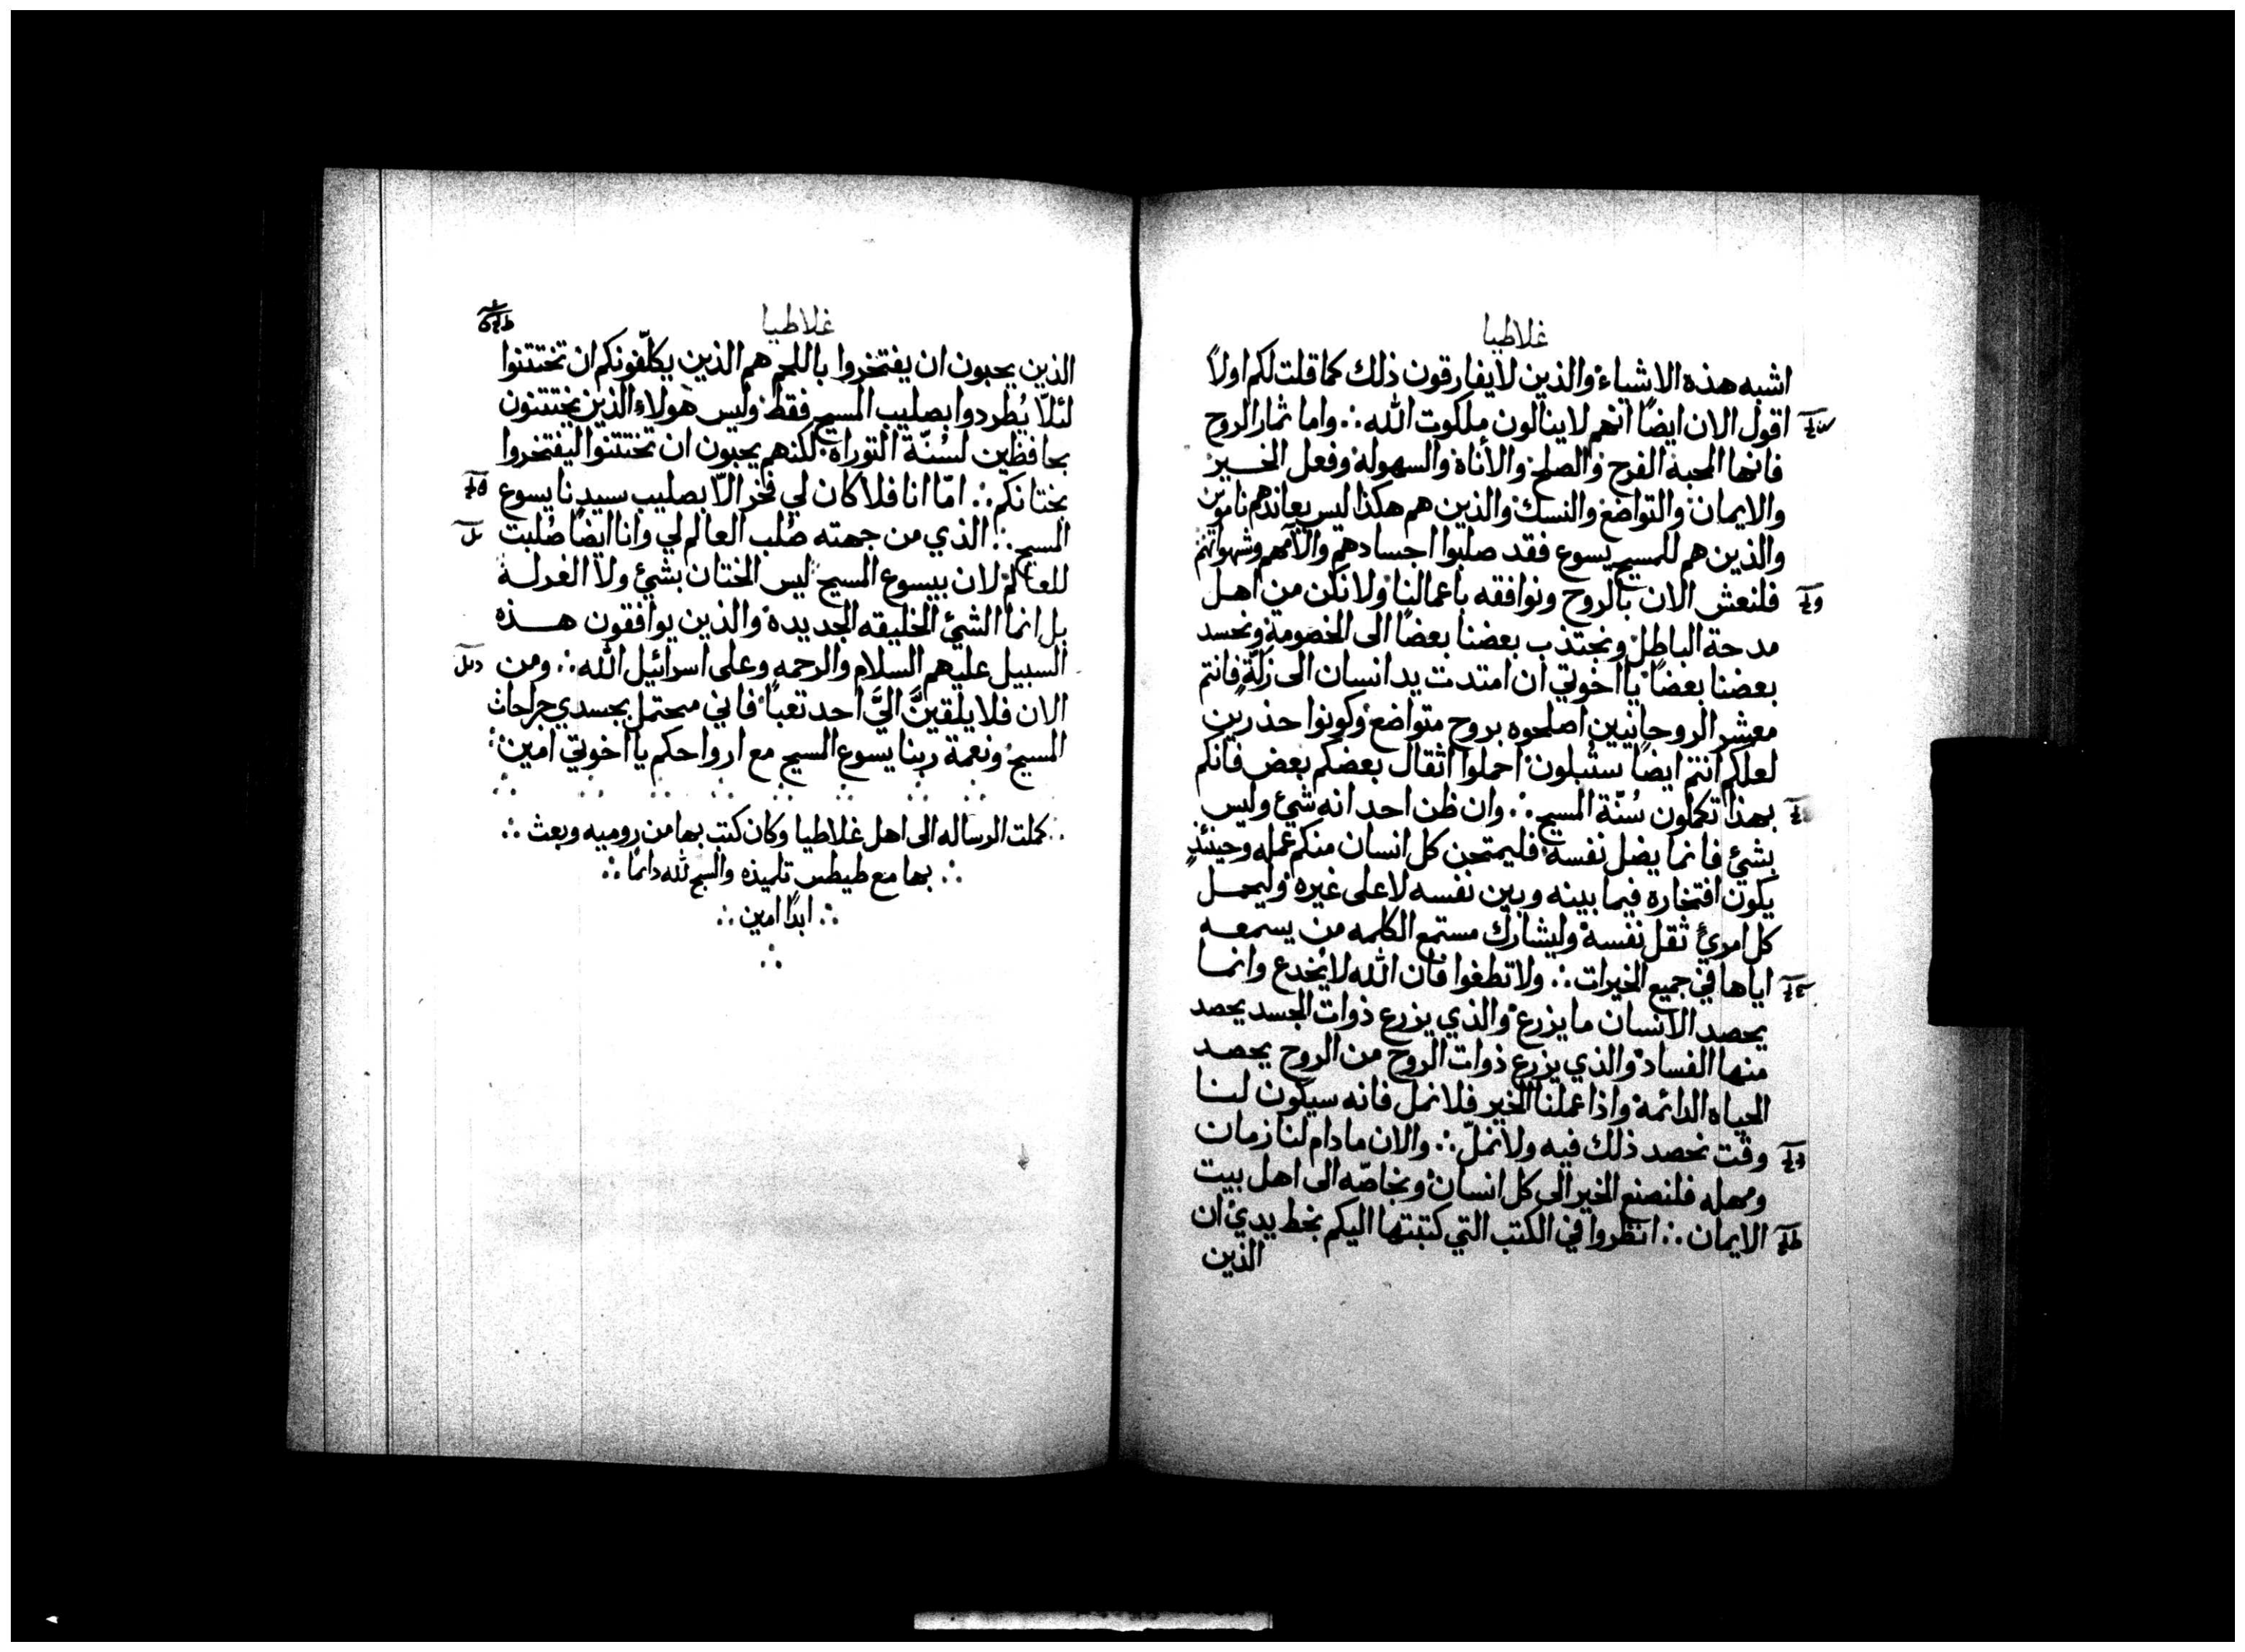 غلاطيا
اشبه هذه الاشياء والذين لايفارقون ذلك كما قلت لكم اولاً
اقول الان ايضاً انهم لاينالون ملكوت الله ∴ واما ثمار الروح
فانها المحبة الفرح والصلح والأناة والسهولة وفعل الخير
والايمان والتواضع والنسك والذين هم هكذا ليس يعاندهم ناموس
والذين هم للمسيح يسوع فقد صلبوا اجسادهم والامهم وشهواتهم
فلنعش الان بالروح ونوافقه باعمالنا ولا نكن من اهل
مدحة الباطل ونجتذب بعضنا بعضاً الى الخصومة ونحسد
بعضنا بعضاً يااخوتي ان امتدت يد انسان الى زلّةٍ فانتم
معشر الروحانيين اصلحوه بروح متواضع وكونوا حذرين
لعلكم انتم ايضاً ستُبلون احملوا اثقال بعضكم بعض فانكم
بهذا تكملون سُنّة المسيح ∴ وان ظن احد انه شئ وليس
بشئ فانما يضل نفسه فليمتحن كل انسان منكم عمله وحينئذٍ
يكون افتخاره فيما بينه وبين نفسه لاعلى غيره وليحمل
كل امرئ ثقل نفسه وليشارك مستمع الكلمه من يسمعه
اياها في جميع الخيرات ∴ ولا تطغوا فان الله لايُخدع وانما
يحصد الانسان مايزرع والذي يزرع ذوات الجسد يحصد
منها الفساد والذي يزرع ذوات الروح من الروح يحصد
الحياه الدائمة واذا عملنا الخير فلا نمل فانه سيكون لنا
وقت نحصد ذلك فيه ولا نملّ ∴ والان مادام لنا زمان
ومهله فلنصنع الخير الى كل انسان وبخاصّه الى اهل بيت
الايمان ∴ انظروا في الكتب التي كتبتها اليكم بخط يدي ان
الذين
غلاطيا
الذين يحبون ان يفتخروا باللحم هم الذين يكلّفونكم ان تختتنوا
لئلّا يُطردوا بصليب المسيح فقط وليس هولاء الذين يختتنون
بحافظين لسُنّة التوراة لكنهم يحبون ان تختتنوا ليفتخروا
بختانكم ∴ امّا انا فلا كان لي فخر الّا بصليب سيدنا يسوع
المسيح ∴ الذي من جهته صُلب العالم لي وانا ايضاً صُلبت
للعالم لان بيسوع المسيح ليس الختان بشئ ولا الغرلة
بل انما الشئ الخليقه الجديدة والذين يوافقون هذه
السبيل عليهم السلام والرحمه وعلى اسرائيل الله ∴ ومن
الان فلا يلقينَّ اليَّ احد تعباً فاني محتمل بجسدي جراحات
المسيح ونعمة ربنا يسوع المسيح مع ارواحكم يا اخوتي امين
∴ كملت الرساله الى اهل غلاطيا وكان كتب بها من روميه وبعث ∴
∴ بها مع طيطس تلميذه والسبح لله دائماً ∴
∴ ابداً امين ∴